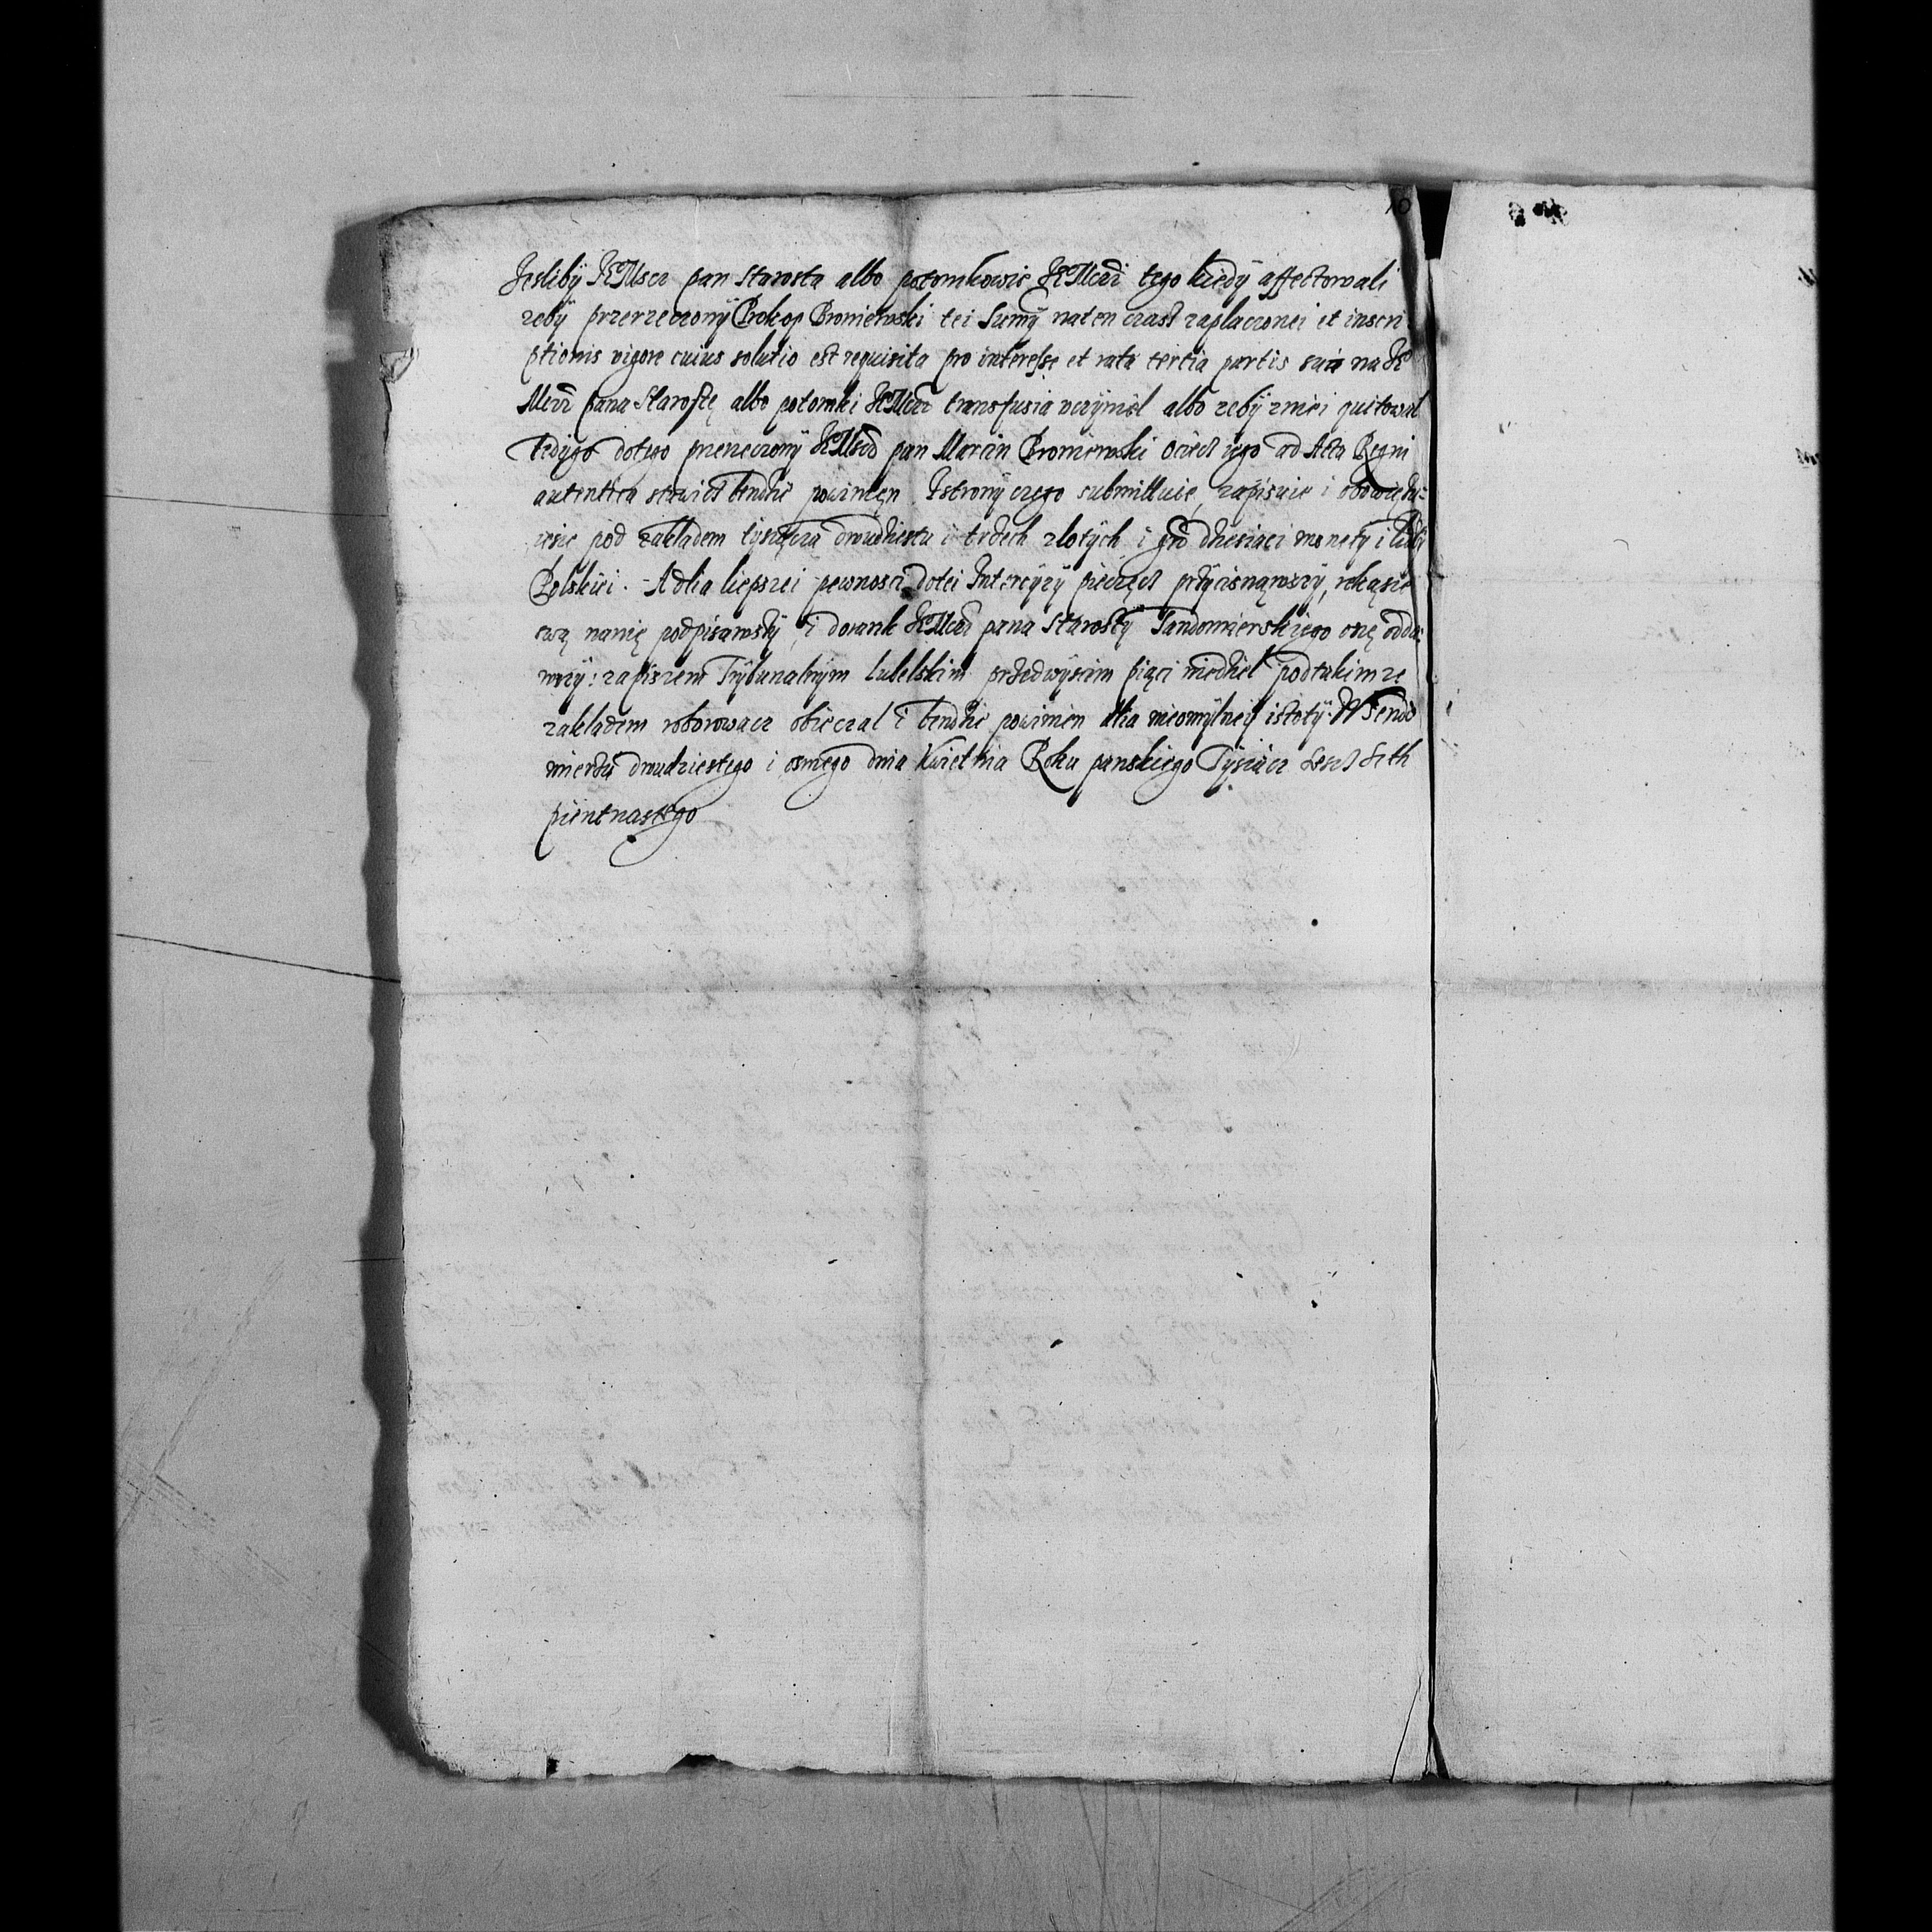 10
Jesliby JE Mscz pan Starosta albo potomkowie JE Mczi tego kiedy affectowali
zeby przerzeczony Prokop Broniewski tei Sumy naten czasz zaplaczonei et inscri
ptionis vigore cuius solutio est requisita pro interesse et rata tertia partis sua na Je
Mczi pana Staroste albo potomki JE Mczi transfusia uczyniel albo zeby zniei quitowal
tedy go do tego przerzeczony JE Mscz pan Marcin Broniewski ociecz iego ad Acta Regni
autentica stawicz bendzie powinien Istrony czego submittuie, zapisuie i obowięzu-
iesie pod zakladem tysiącza dwudziestu i trzech zlotych i gro dziesiaci monety i liczby
Polskiei. A dlia liepszei pewnosci do tei Intercyzy pieczącz przycisnąwszy, ręką sie
swą namię podpisawszy, i do rank JE Mczi pana Starosty Sandomierskiego onę odda-
wszy: zapisem Trybunalnym Lubelskim przed wyscim piąci niedziel pod takimze
zakladem roborowacz obieczal i bendzie powinien dlia nieomylnei istoty. W Sendo
mierzu dwudziestego i osmego dnia Kwietnia Roku panskiego Tysiącz Szescz Seth
pientnastego